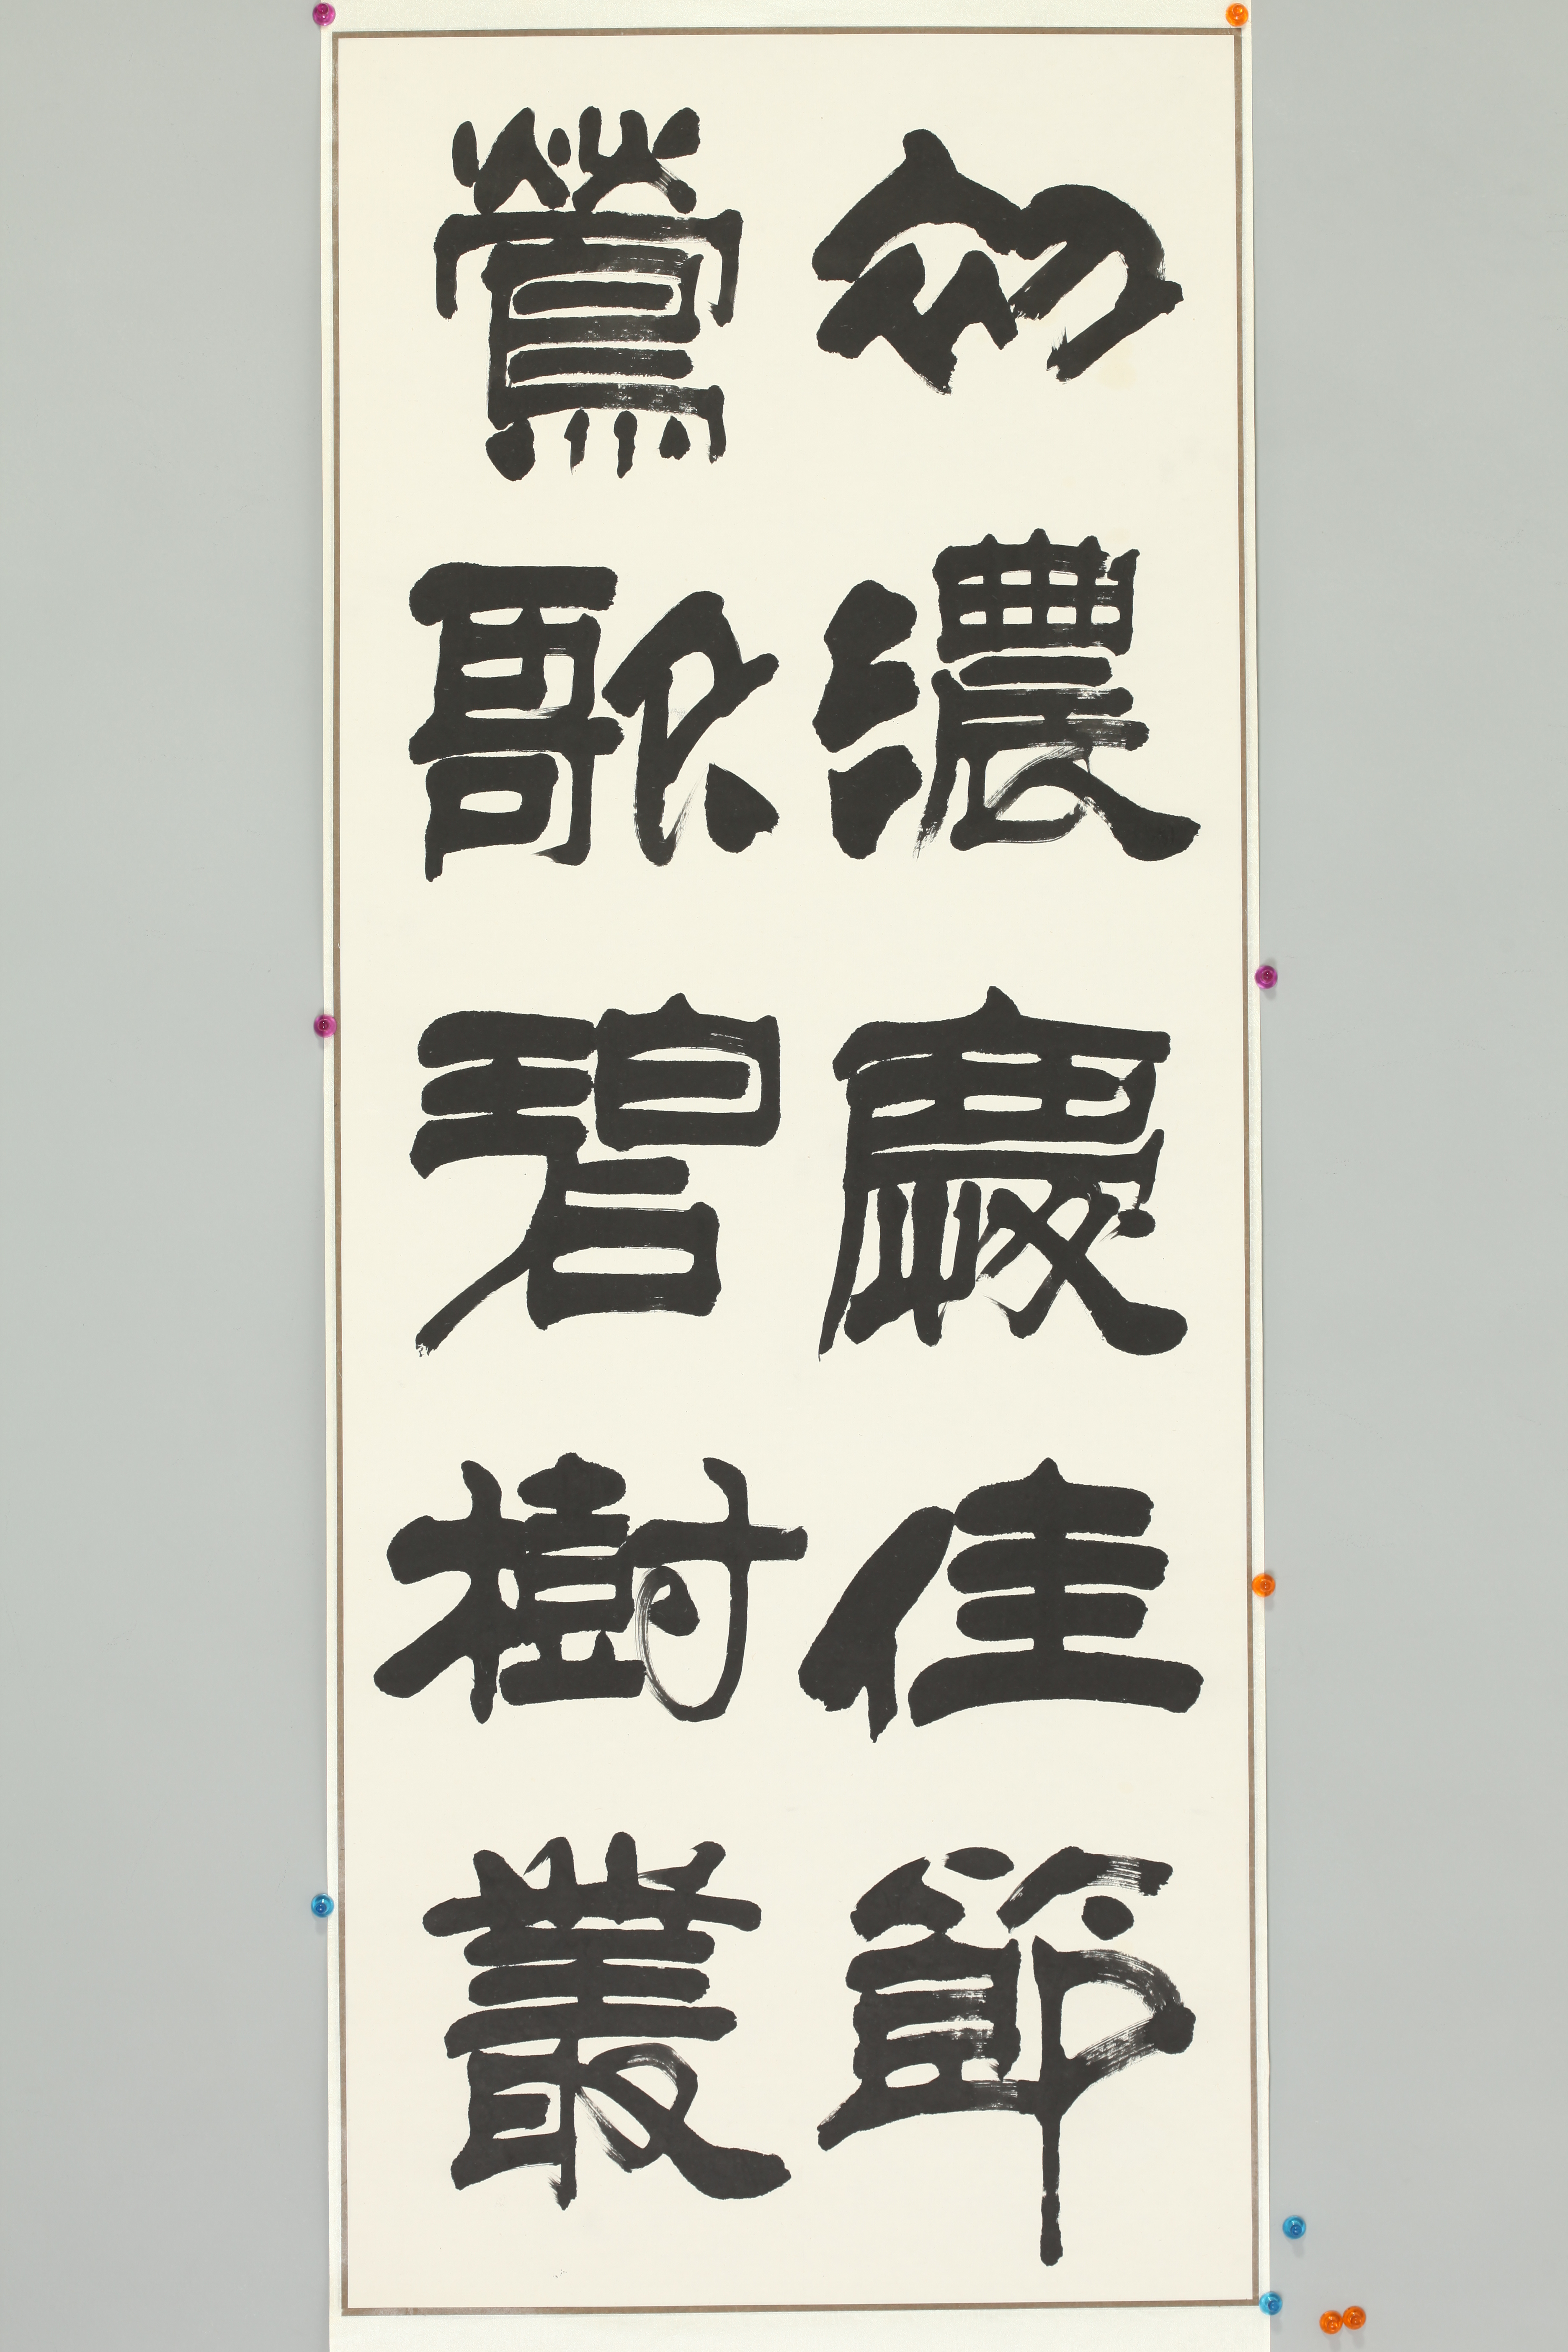 濃慶佳節
鶯歌碧樹叢